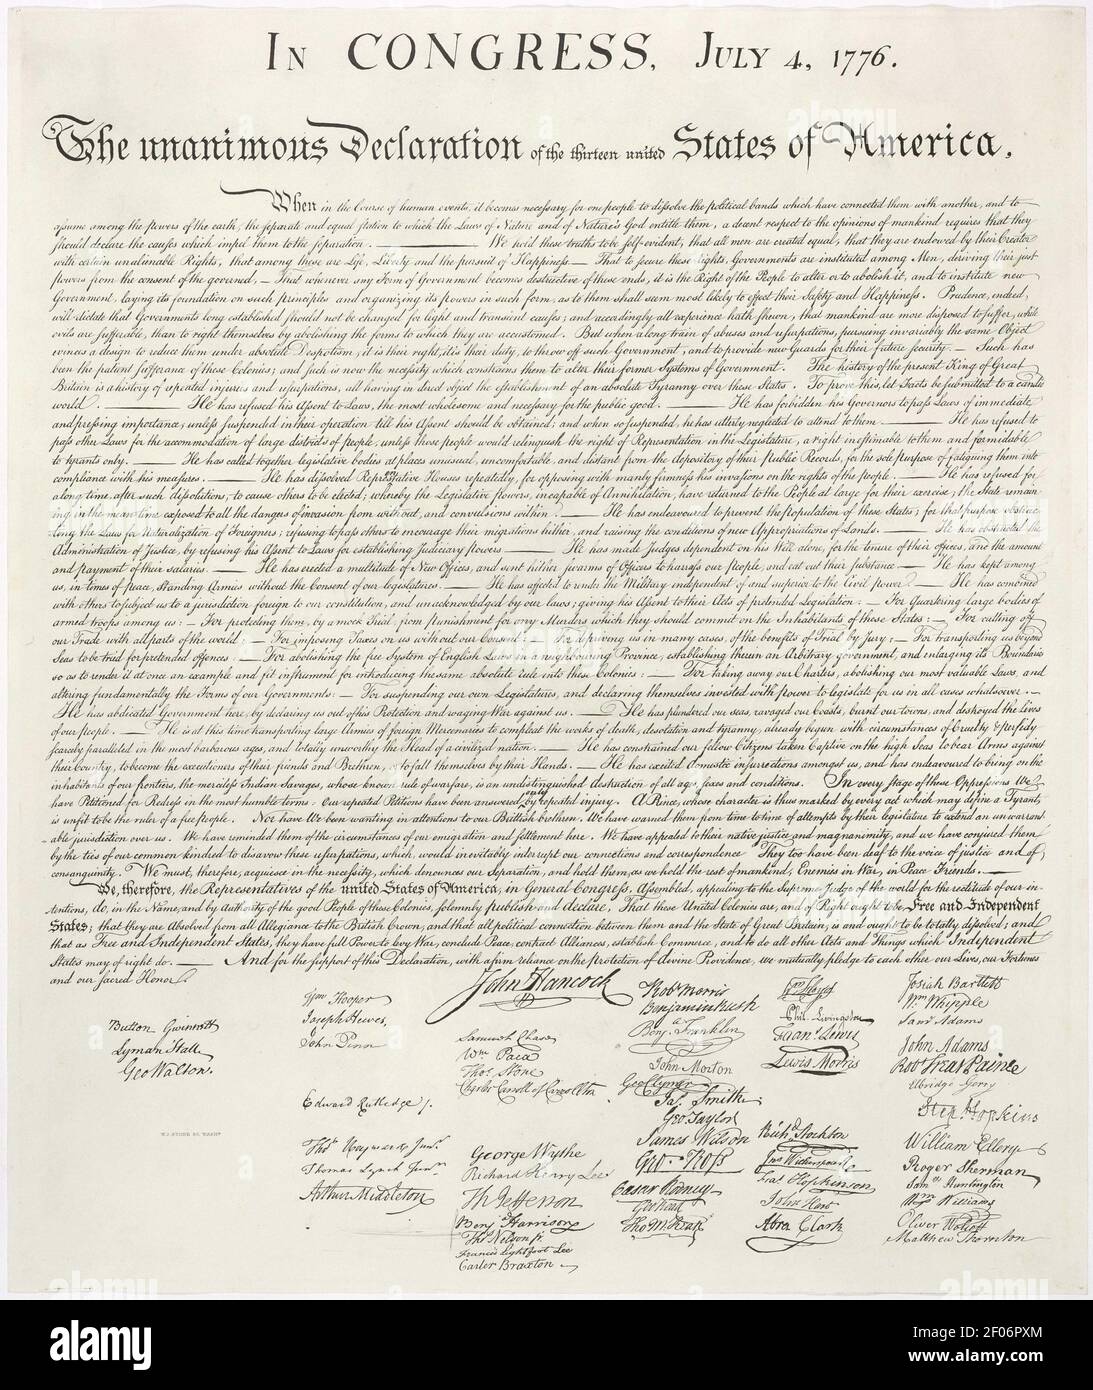 In CONGRESS, July 4, 1776.
The unanimous Declaration of the thirteen united States of America,
When in the Course of human events, it becomes necessary for one people to dissolve the political bands which have connected them with another, and to
assume among the powers of the earth, the separate and equal station to which the Laws of Nature and of Nature's God entitle them, a decent respect to the opinions of mankind requires that they
should declare the causes which impel them to the separation. — We hold these truths to be self-evident, that all men are created equal, that they are endowed by their Creator
with certain unalienable Rights, that among these are Life, Liberty and the pursuit of Happiness — That to secure these rights, Governments are instituted among Men, deriving their just
powers from the consent of the governed, — That whenever any Form of Government becomes destructive of these ends, it is the Right of the People to alter or to abolish it, and to institute new
Government, laying its foundation on such principles and organizing its powers in such form, as to them shall seem most likely to effect their Safety and Happiness. Prudence, indeed,
will dictate that Governments long established should not be changed for light and transient causes; and accordingly all experience hath shewn, that mankind are more disposed to suffer, while
evils are sufferable, than to right themselves by abolishing the forms to which they are accustomed. But when a long train of abuses and usurpations, pursuing invariably the same Object
evinces a design to reduce them under absolute Despotism, it is their right, it is their duty, to throw off such Government, and to provide new Guards for their future security. — Such has
been the patient sufferance of these Colonies; and such is now the necessity which constrains them to alter their former Systems of Government. The history of the present King of Great
Britain is a history of repeated injuries and usurpations, all having in direct object the establishment of an absolute Tyranny over these States. To prove this, let Facts be submitted to a candid
world. — He has refused his Assent to Laws, the most wholesome and necessary for the public good. — He has forbidden his Governors to pass Laws of immediate
and pressing importance, unless suspended in their operation till his Assent should be obtained; and when so suspended, he has utterly neglected to attend to them. — He has refused to
pass other Laws for the accommodation of large districts of people, unless those people would relinquish the right of Representation in the Legislature, a right inestimable to them and formidable
to tyrants only. — He has called together legislative bodies at places unusual, uncomfortable, and distant from the depository of their Public Records, for the sole purpose of fatiguing them into
compliance with his measures. — He has dissolved Representative Houses repeatedly, for opposing with manly firmness his invasions on the rights of the people. — He has refused for
a long time, after such dissolutions, to cause others to be elected; whereby the Legislative powers, incapable of Annihilation, have returned to the People at large for their exercise; the State remain-
ing in the mean time exposed to all the dangers of invasion from without, and convulsions within. — He has endeavoured to prevent the population of these States; for that purpose obstruct-
ing the Laws for Naturalization of Foreigners; refusing to pass others to encourage their migrations hither, and raising the conditions of new Appropriations of Lands. — He has obstructed the
Administration of Justice, by refusing his Assent to Laws for establishing Judiciary powers — He has made Judges dependent on his Will alone, for the tenure of their offices, and the amount
and payment of their salaries. — He has erected a multitude of New Offices, and sent hither swarms of Officers to harrass our people, and eat out their substance — He has kept among
us, in times of peace, Standing Armies without the Consent of our legislatures. — He has affected to render the Military independent of and superior to the Civil power — He has combined
with others to subject us to a jurisdiction foreign to our constitution, and unacknowledged by our laws; giving his Assent to their Acts of pretended Legislation: — For Quartering large bodies of
armed troops among us: — For protecting them, by a mock Trial, from punishment for any Murders which they should commit on the Inhabitants of these States: — For cutting off
our Trade with all parts of the world: — For imposing Taxes on us without our Consent: — For depriving us in many cases, of the benefits of Trial by Jury: — For transporting us beyond
Seas to be tried for pretended offences — For abolishing the free System of English Laws in a neighbouring Province, establishing therein an Arbitrary government, and enlarging its Boundaries
so as to render it at once an example and fit instrument for introducing the same absolute rule into these Colonies: — For taking away our Charters, abolishing our most valuable Laws, and
altering fundamentally the Forms of our Governments: — For suspending our own Legislatures, and declaring themselves invested with power to legislate for us in all cases whatsoever. —
He has abdicated Government here, by declaring us out of his Protection and waging War against us. — He has plundered our seas, ravaged our Coasts, burnt our towns, and destroyed the lives
of our people. — He is at this time transporting large Armies of foreign Mercenaries to compleat the works of death, desolation and tyranny, already begun with circumstances of Cruelty & perfidy
scarcely paralleled in the most barbarous ages, and totally unworthy the Head of a civilized nation. — He has constrained our fellow Citizens taken Captive on the high Seas to bear Arms against
their Country, to become the executioners of their friends and Brethren, or to fall themselves by their Hands. — He has excited domestic insurrections amongst us, and has endeavoured to bring on the
inhabitants of our frontiers, the merciless Indian Savages, whose known rule of warfare, is an undistinguished destruction of all ages, sexes and conditions. In every stage of these Oppressions We
have Petitioned for Redress in the most humble terms: Our repeated Petitions have been answered only by repeated injury. A Prince, whose character is thus marked by every act which may define a Tyrant,
is unfit to be the ruler of a free people. Nor have We been wanting in attentions to our Brittish brethren. We have warned them from time to time of attempts by their legislature to extend an unwarrant-
able jurisdiction over us. We have reminded them of the circumstances of our emigration and settlement here. We have appealed to their native justice and magnanimity, and we have conjured them
by the ties of our common kindred to disavow these usurpations, which, would inevitably interrupt our connections and correspondence They too have been deaf to the voice of justice and of
consanguinity. We must, therefore, acquiesce in the necessity, which denounces our Separation, and hold them, as we hold the rest of mankind, Enemies in War, in Peace Friends. —
We, therefore, the Representatives of the united States of America, in General Congress, Assembled, appealing to the Supreme Judge of the world for the rectitude of our in-
tentions, do, in the Name, and by Authority of the good People of these Colonies, solemnly publish and declare, That these United Colonies are, and of Right ought to be Free and Independent
States; that they are Absolved from all Allegiance to the British Crown, and that all political connection between them and the State of Great Britain, is and ought to be totally dissolved; and
that as Free and Independent States, they have full Power to levy War, conclude Peace, contract Alliances, establish Commerce, and to do all other Acts and Things which Independent
States may of right do. — And for the support of this Declaration, with a firm reliance on the Protection of divine Providence, we mutually pledge to each other our Lives, our Fortunes
and our sacred Honor.
Button Gwinnett
Lyman Hall
Geo Walton.
W.J. STONE SC. WASHn.
Wm Hooper
Joseph Hewes,
John Penn
Edward Rutledge /.
Thos Heyward Junr.
Thomas Lynch Junr.
Arthur Middleton
John Hancock
Samuel Chase
Wm Paca
Thos Stone
Charles Carroll of Carrollton
George Wythe
Richard Henry Lee
Th Jefferson
Benj Harrison
Thos Nelson jr.
Francis Lightfoot Lee
Carter Braxton
Robt Morris
Benjamin Rush
Benja Franklin
John Morton
Geo Clymer
Jas Smith
Geo Taylor
James Wilson
Geo. Ross
Caesar Rodney
Geo Read
Tho M:Kean
Wm Floyd
Phil. Livingston
Frans. Lewis
Lewis Morris
Richd Stockton
Jno Witherspoon
Fras Hopkinson
John Hart
Abra Clark
Josiah Bartlett
Wm Whipple
Saml Adams
John Adams
Robt Treat Paine
Elbridge Gerry
Step Hopkins
William Ellery
Roger Sherman
Saml Huntington
Wm Williams
Oliver Wolcott
Matthew Thornton
alamy
Image ID: 2F06PXM
www.alamy.com